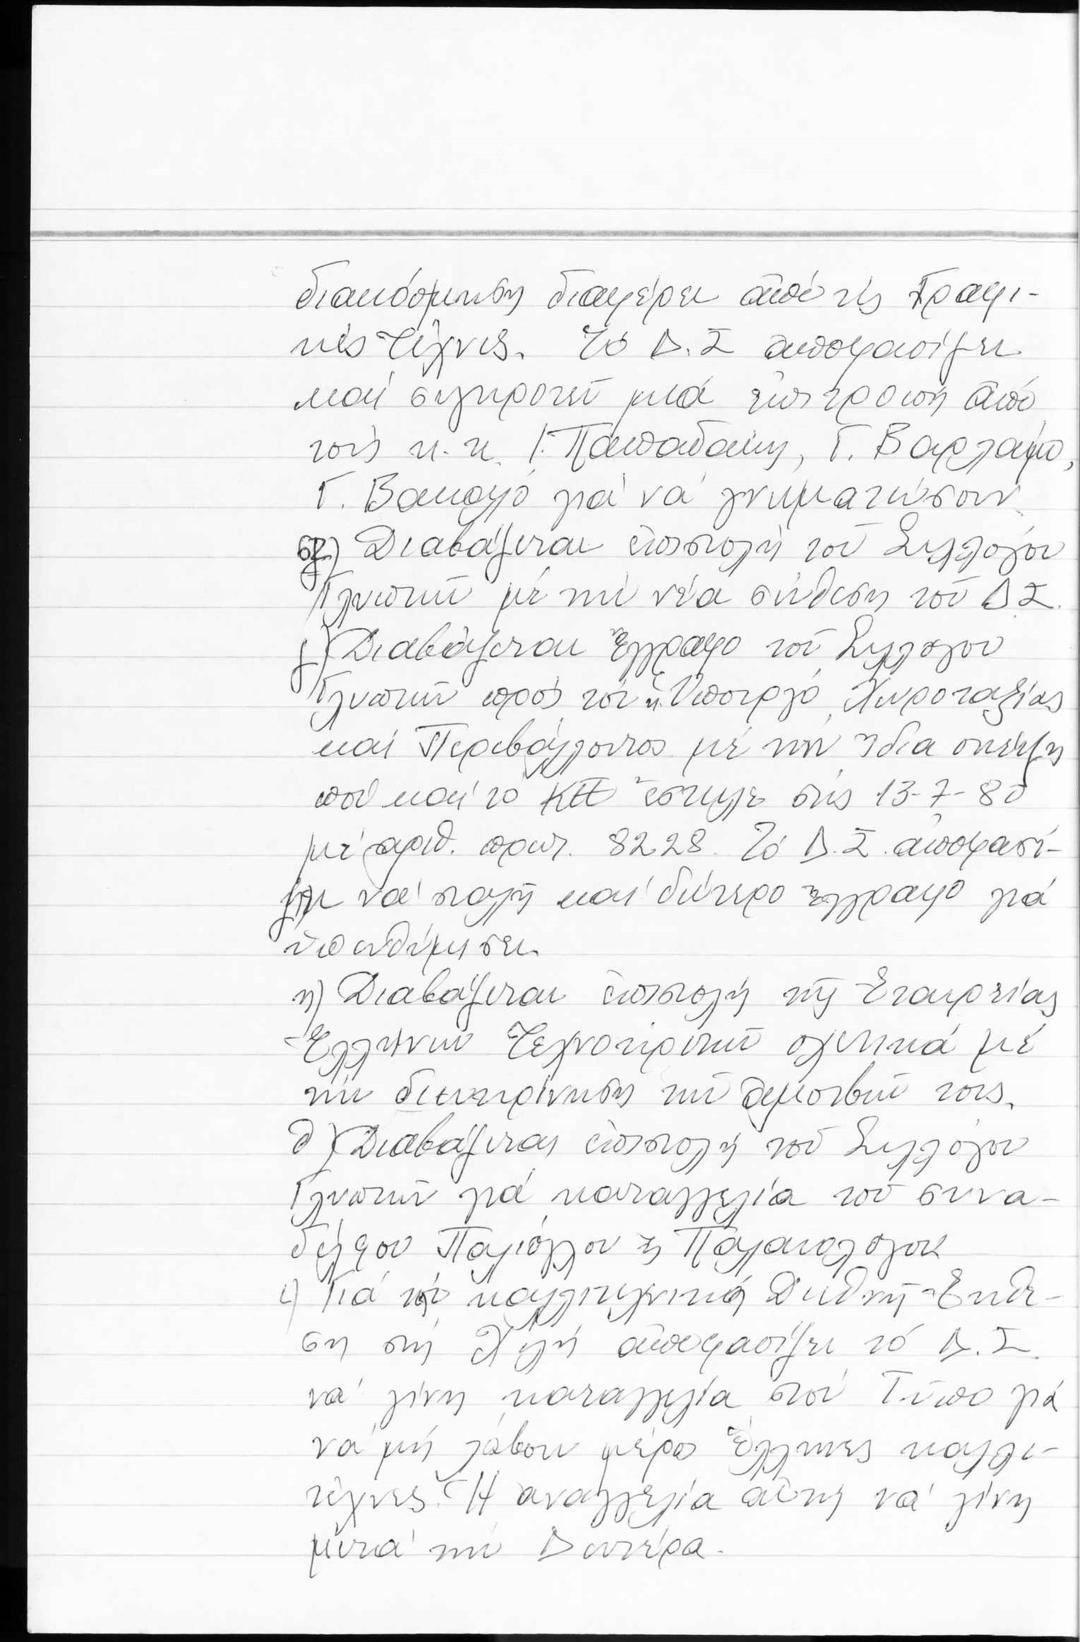 διακόσμηση διαφέρει ἀπό τίς Γραφι-
κές τέχνες. Τό Δ.Σ ἀποφασίζει
καί συγκροτεῖ μιά ἐπιτροπή ἀπό
τούς κ.κ. Ι. Παπαδάκη, Γ. Βαρλάμο,
Γ. Βακιρτζῆ γιά νά γνωματεύσουν
στ) Διαβάζεται ἐπιστολή τοῦ Συλλόγου
Γλυπτῶν μέ τήν νέα σύνθεση τοῦ Δ.Σ.
ζ) Διαβάζεται ἔγγραφο τοῦ Συλλόγου
Γλυπτῶν πρός τόν Ὑπουργό Χωροταξίας
καί Περιβάλλοντος μέ τήν ἴδια σκέψη
πού καί τό ΚΕΕ ἔστειλε στίς 13-7-80
μέ ἀριθ. πρωτ. 8228. Τό Δ.Σ. ἀποφασί-
ζει νά σταλῆ καί δεύτερο ἔγγραφο γιά
ὑπενθύμηση.
η) Διαβάζεται ἐπιστολή τῆς Ἑταιρείας
Ἑλλήνων Τεχνοκριτῶν σχετικά μέ
τήν διευκρίνηση τῶν ἀμοιβῶν τους.
θ) Διαβάζεται ἐπιστολή τοῦ Συλλόγου
Γλυπτῶν γιά καταγγελία τοῦ συνα-
δέλφου Παλιόγλου ἤ Παλαιολόγου
ι) Γιά τήν καλλιτεχνική Διεθνῆ Ἔκθε-
ση στή Χιλή ἀποφασίζει τό Δ.Σ.
νά γίνη καταγγελία στόν Τύπο γιά
νά μή λάβουν μέρος Ἕλληνες καλλι-
τέχνες. Ἡ ἀναγγελία αὐτή νά γίνη
μετά τήν Δευτέρα.